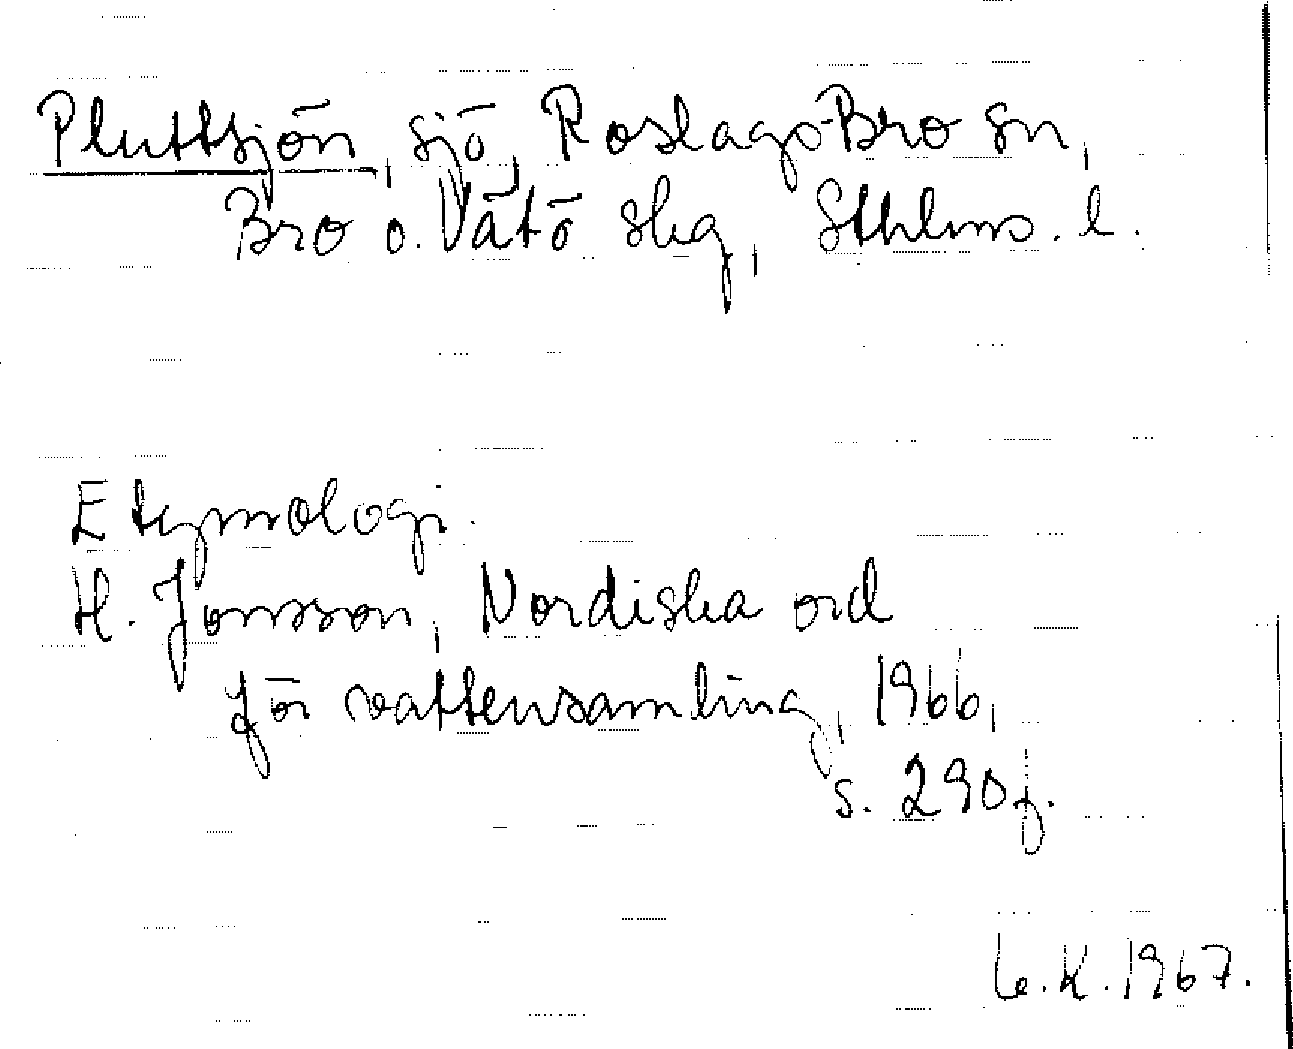 Pluttsjön, sjö, Roslags-Bro sn,
Bro o. Vätö skg, Sthlms. l.
Etymologi.
H. Jonsson, Nordiska ord
för vattensamling, 1966,
s. 290 f.
K. 1967.